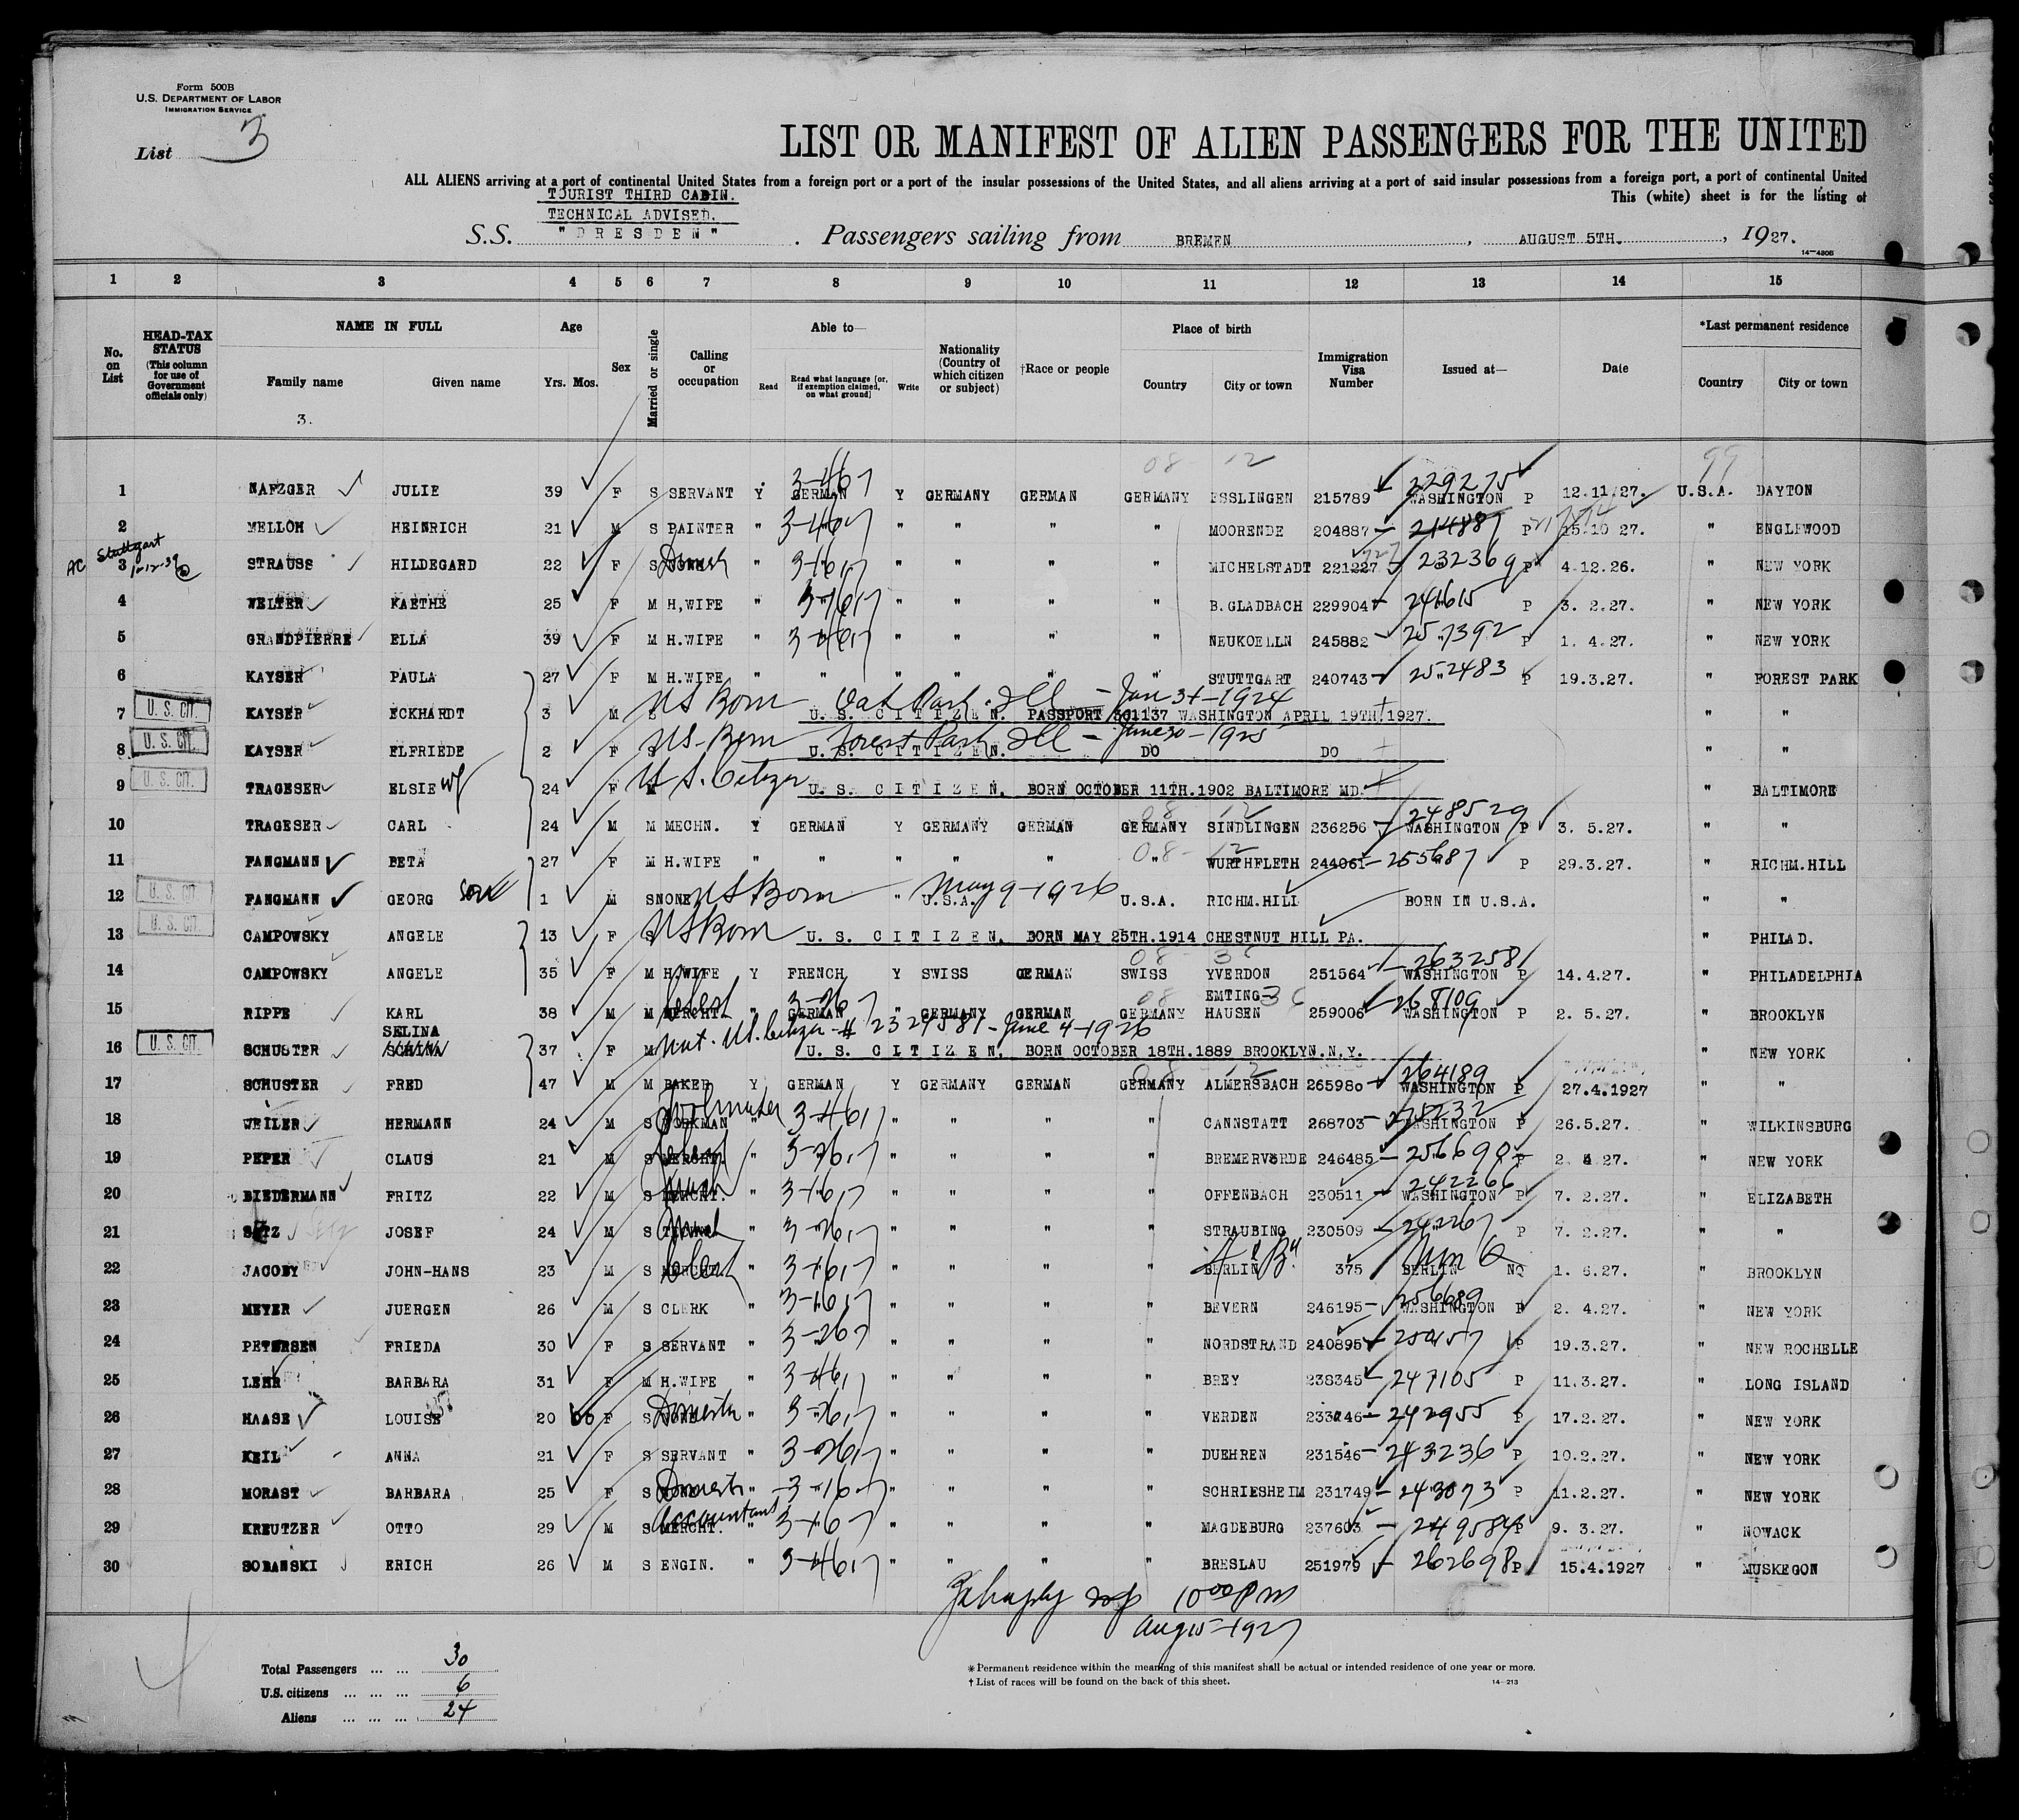 Form 500B
U.S. DEPARTMENT OF LABOR
IMMIGRATION SERVICE
List 3
LIST OR MANIFEST OF ALIEN PASSENGERS FOR THE UNITED
ALL ALIENS arriving at a port of continental United States from a foreign port or a port of the insular possessions of the United States, and all aliens arriving at a port of said insular possessions from a foreign port, a port of continental United
This (white) sheet is for the listing of
TOURIST THIRD CABIN.
TECHNICAL ADVISED.
S.S. "DRESDEN" . Passengers sailing from BREMEN , AUGUST 5TH. , 1927.
14-430B
1 2 3 4 5 6 7 8 9 10 11 12 13 14 15
No. on List
HEAD-TAX STATUS
(This column for use of Government officials only)
NAME IN FULL
Family name Given name
3.
Age
Yrs. Mos.
Sex
Married or single
Calling or occupation
Able to—
Read Read what language [or, if exemption claimed, on what ground] Write
Nationality (Country of which citizen or subject)
†Race or people
Place of birth
Country City or town
Immigration Visa Number
Issued at—
Date
*Last permanent residence
Country City or town
08 12 99
1 NAFZGER JULIE 39 F S SERVANT Y GERMAN Y GERMANY GERMAN GERMANY ESSLINGEN 215789 229275 WASHINGTON P 12.11.27. U.S.A. DAYTON
2 MELLOH HEINRICH 21 M S PAINTER " " " " " MOORENDE 204887 214887 P 15.10 27. " ENGLEWOOD
AC Stuttgart 1-12-39
3 STRAUSS HILDEGARD 22 F S " " " " " MICHELSTADT 221227 232369 P 4.12.26. " NEW YORK
4 WELTER KAETHE 25 F M H,WIFE " " " " " " B.GLADBACH 229904 241615 P 3. 2.27. " NEW YORK
5 GRANDPIERRE ELLA 39 F M H.WIFE " " " " " NEUKOELLN 245882 257392 P 1. 4.27. " NEW YORK
6 KAYSER PAULA 27 F M H.WIFE " " " " " " STUTTGART 240743 252483 P 19.3.27. " FOREST PARK
U. S. CIT.
7 KAYSER ECKHARDT 3 M S US Born Oak Park. Ill - Jan 31-1924
U. S. CITIZEN. PASSPORT 301137 WASHINGTON APRIL 19TH.1927. " "
U. S. CIT.
8 KAYSER ELFRIEDE 2 F S US-Born Forest Park Ill - June 30-1925
U. S. CITIZEN. DO DO " "
U. S. CIT.
9 TRAGESER ELSIE wf 24 F M U S. Citizen
U. S. CITIZEN. BORN OCTOBER 11TH.1902 BALTIMORE MD. " BALTIMORE
10 TRAGESER CARL 24 M M MECHN. Y GERMAN Y GERMANY GERMAN GERMANY SINDLINGEN 236256 248529 WASHINGTON P 3. 5.27. " "
11 FANGMANN BETA 27 F M H.WIFE " " " " " " WURTHFLETH 244061 255687 P 29.3.27. " RICHM.HILL
U. S. CIT.
12 FANGMANN GEORG son 1 M S NONE US Born " May 9-1926 U.S.A. U.S.A. RICHM.HILL BORN IN U.S.A. " "
U. S. CIT.
13 CAMPOWSKY ANGELE 13 F S US Born U. S. CITIZEN. BORN MAY 25TH.1914 CHESTNUT HILL PA. " PHILAD.
14 CAMPOWSKY ANGELE 35 F M H.WIFE Y FRENCH Y SWISS GERMAN SWISS YVERDON 251564 263258 WASHINGTON P 14.4.27. " PHILADELPHIA
15 RIPPE KARL 38 M M MERCHT. " GERMAN " GERMANY GERMAN GERMANY EMTING HAUSEN 259006 268109 WASHINGTON P 2. 5.27. " BROOKLYN
U. S. CIT.
16 SCHUSTER SELINA 37 F M Nat. US. Citizen # 2324581 - June 4-1926
U. S. CITIZEN. BORN OCTOBER 18TH.1889 BROOKLYN.N.Y. " NEW YORK
17 SCHUSTER FRED 47 M M BAKER Y GERMAN Y GERMANY GERMAN GERMANY ALMERSBACH 265980 264189 WASHINGTON P 27.4.1927 " "
18 WEILER HERMANN 24 M S WORKMAN " " " " " CANNSTATT 268703 275232 WASHINGTON P 26.5.27. " WILKINSBURG
19 PEPER CLAUS 21 M S MERCHT. " " " " " BREMERVÖRDE 246485 256690 P 2. 4.27. " NEW YORK
20 BIEDERMANN FRITZ 22 M S MERCHT. " " " " " OFFENBACH 230511 242266 WASHINGTON P 7. 2.27. " ELIZABETH
21 JOSEF 24 M S " " " " " STRAUBING 230509 242267 P 7. 2.27. " "
22 JACOBY JOHN-HANS 23 M S " " " " " BERLIN 375 BERLIN NQ 1. 6.27. " BROOKLYN
23 MEYER JUERGEN 26 M S CLERK " " " " " BEVERN 246195 256689 WASHINGTON P 2. 4.27. " NEW YORK
24 PETERSEN FRIEDA 30 F S SERVANT " " " " " NORDSTRAND 240895 P 19.3.27. " NEW ROCHELLE
25 LEHR BARBARA 31 F M H.WIFE " " " " " BREY 238345 247105 P 11.3.27. " LONG ISLAND
26 HAASE LOUISE 20 F S Domestic " " " " " VERDEN 242955 P 17.2.27. " NEW YORK
27 KEIL ANNA 21 F S SERVANT " " " " " DUEHREN 231546 243236 P 10.2.27. " NEW YORK
28 MORAST BARBARA 25 F S Domestic " " " " " SCHRIESHEIM 231749 243073 P 11.2.27. " NEW YORK
29 KREUTZER OTTO 29 M S MERCHT. Accountant " " " " " MAGDEBURG 237603 249584 P 9. 3.27. " NOWACK
30 SOBANSKI ERICH 26 M S ENGIN. " " " " " BRESLAU 251979 262698 P 15.4.1927 " MUSKEGON
10 00 PM
Aug 15-1927
Total Passengers ... ... 30
U.S. citizens ... ... ... 6
Aliens ... ... ... 24
*Permanent residence within the meaning of this manifest shall be actual or intended residence of one year or more.
† List of races will be found on the back of this sheet.
14-213